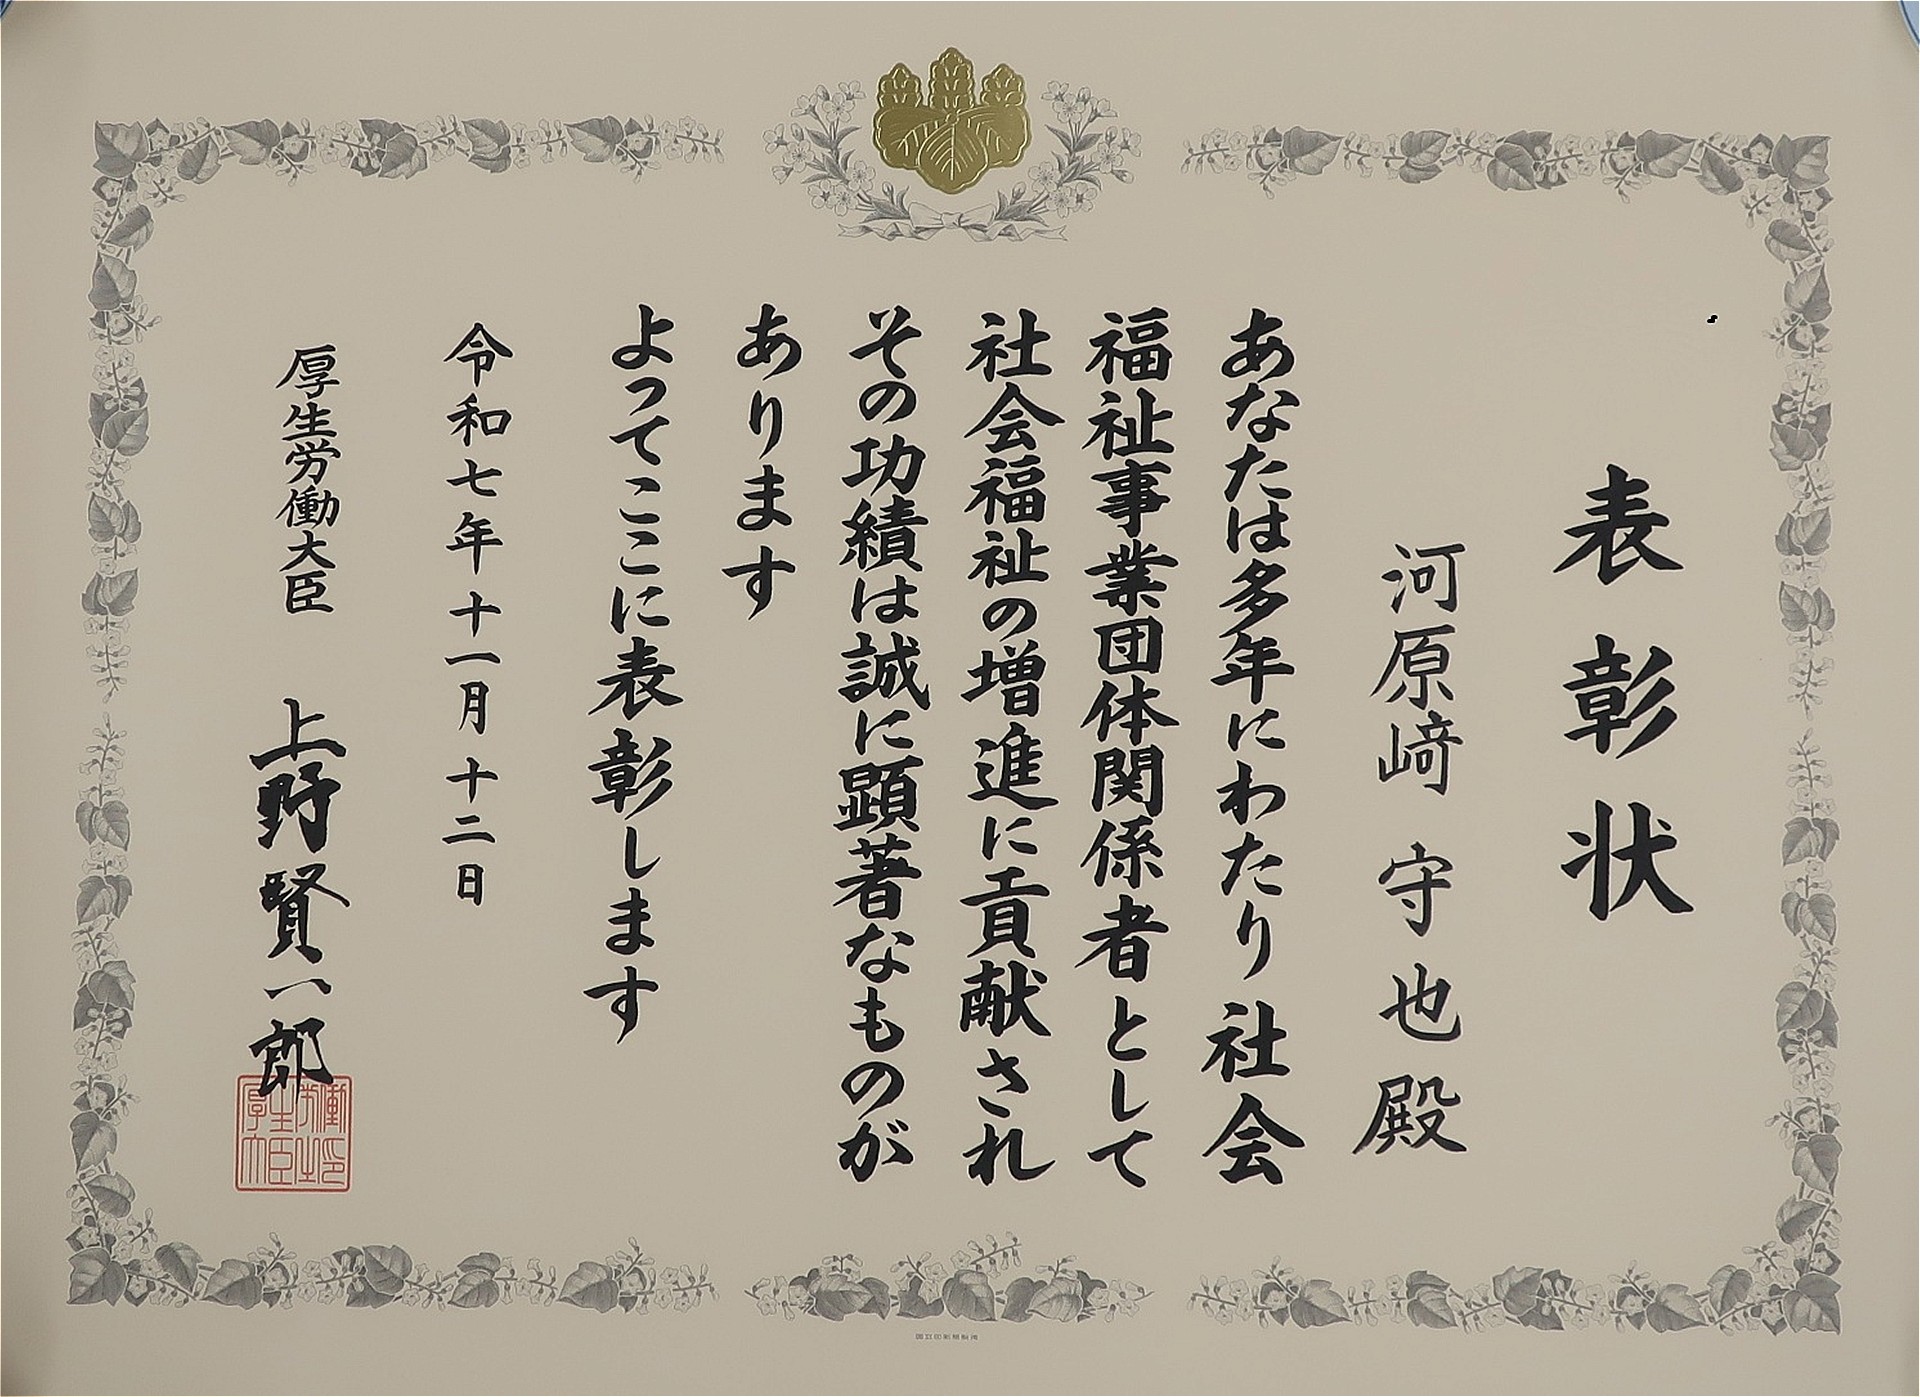 表彰状
河原﨑 守也 殿
あなたは多年にわたり社会
福祉事業団体関係者として
社会福祉の増進に貢献され
その功績は誠に顕著なものが
あります
よってここに表彰します
令和七年十一月十二日
厚生労働大臣 上野賢一郎